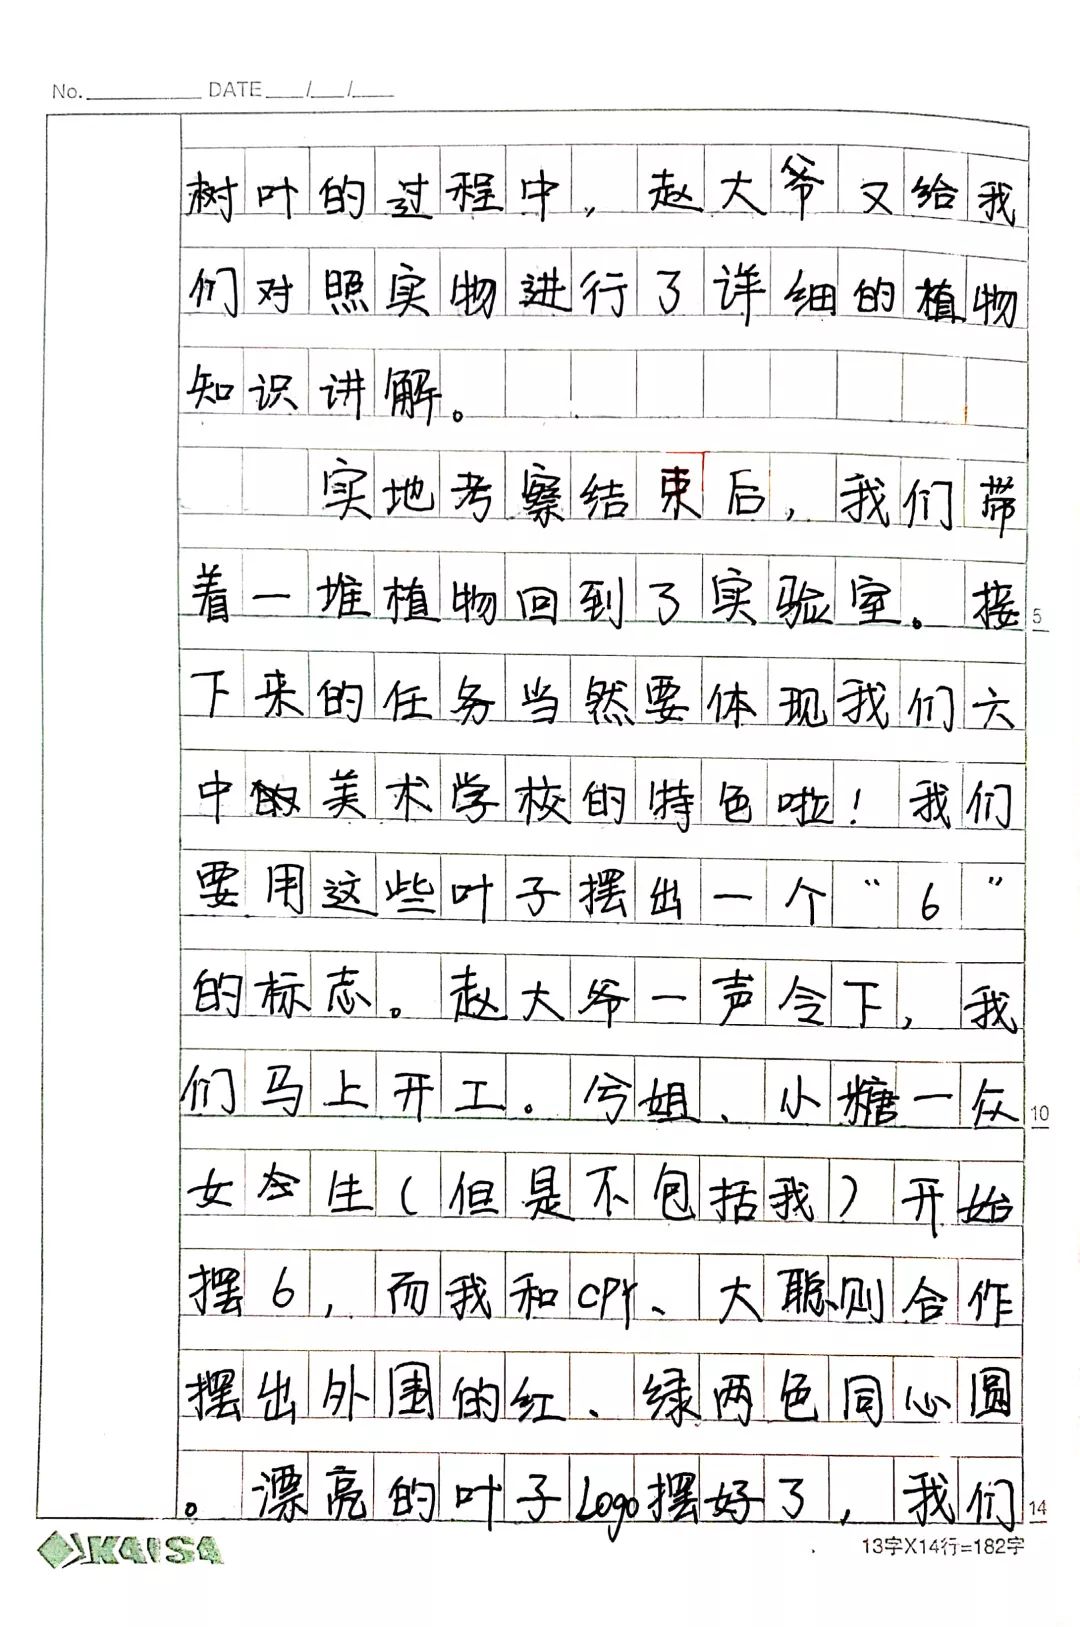 No. DATE / /
树叶的过程中，赵大爷又给我
们对照实物进行了详细的植物
知识讲解。
实地考察结束后，我们带
着一堆植物回到了实验室。接
5
下来的任务当然要体现我们六
中美术学校的特色啦！我们
要用这些叶子摆出一个“6”
的标志。赵大爷一声令下，我
们马上开工。兮姐、小糖一众
10
女生（但是不包括我）开始
摆6，而我和CPY、大聪则合作
摆出外围的红、绿两色同心圆
。漂亮的叶子Logo摆好了，我们
14
KAISA
13字X14行=182字